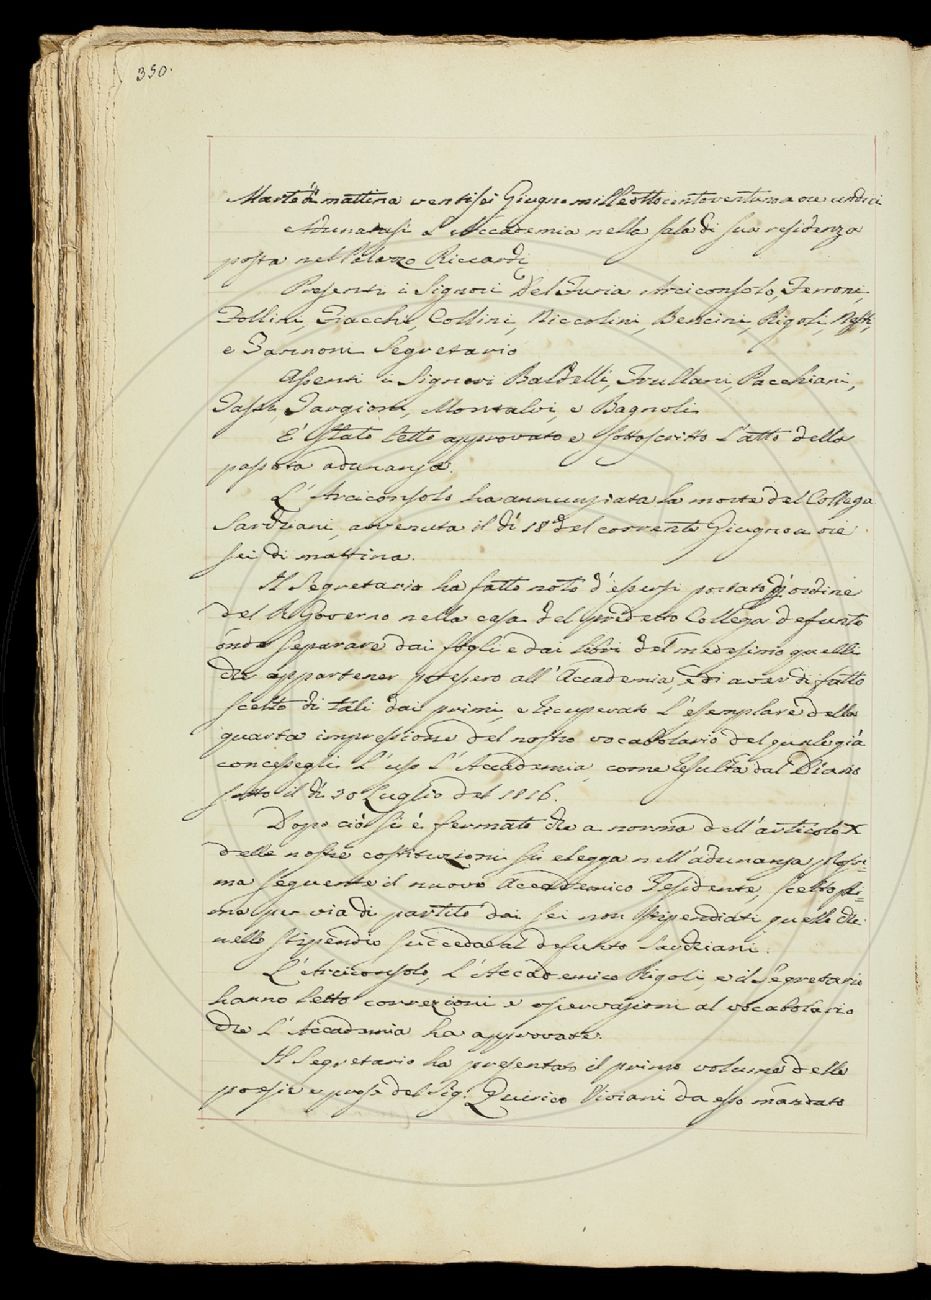 350.
Martedì mattina ventisei Giugno milleottocentoventuno a ore undici
Adunatasi l'Accademia nella sala di sua residenza
posta nel Palazzo Riccardi
Presenti i Signori Del Furia Arciconsolo, Ferroni,
Follini, Fiacchi, Collini, Niccolini, Bencini, Rigoli, Nesti,
e Zannoni Segretario
Assenti i Signori Baldelli, Frullani, Pacchiani,
Targioni, Montalvi, e Bagnoli
È stato letto approvato e sottoscritto l'atto della
passata adunanza.
L'Arciconsolo ha annunziata la morte del Collega
Sarchiani, avvenuta il dì 18 del corrente Giugno a ore
sei di mattina.
Il Segretario ha fatto noto d'essersi portato d'ordine
del R. Governo nella casa del predetto Collega defunto
onde separare dai fogli e dai libri del medesimo quelli
che appartener potessero all'Accademia, e di aver di fatto
scelto di tali dai primi, e ricuperato l'esemplare della
quarta impressione del nostro vocabolario del quale già
concessegli l'uso l'Accademia come resulta dal Diario
sotto il dì 30 Luglio del 1816.
Dopo ciò si è fermato che a norma dell'articolo X
delle nostre costituzioni si elegga nell'adunanza prossi-
ma seguente il nuovo Accademico Residente, scelto pri=
ma per via di partito dai sei non stipendiati quello che
nello stipendio succeda al defunto Sarchiani.
L'Arciconsolo, l'Accademico Rigoli, e il Segretario
hanno letto correzioni e osservazioni al vocabolario
che l'Accademia ha approvate.
Il Segretario ha presentato il primo volume delle
poesie e prose del Sig. Quirico Viviani da esso mandato